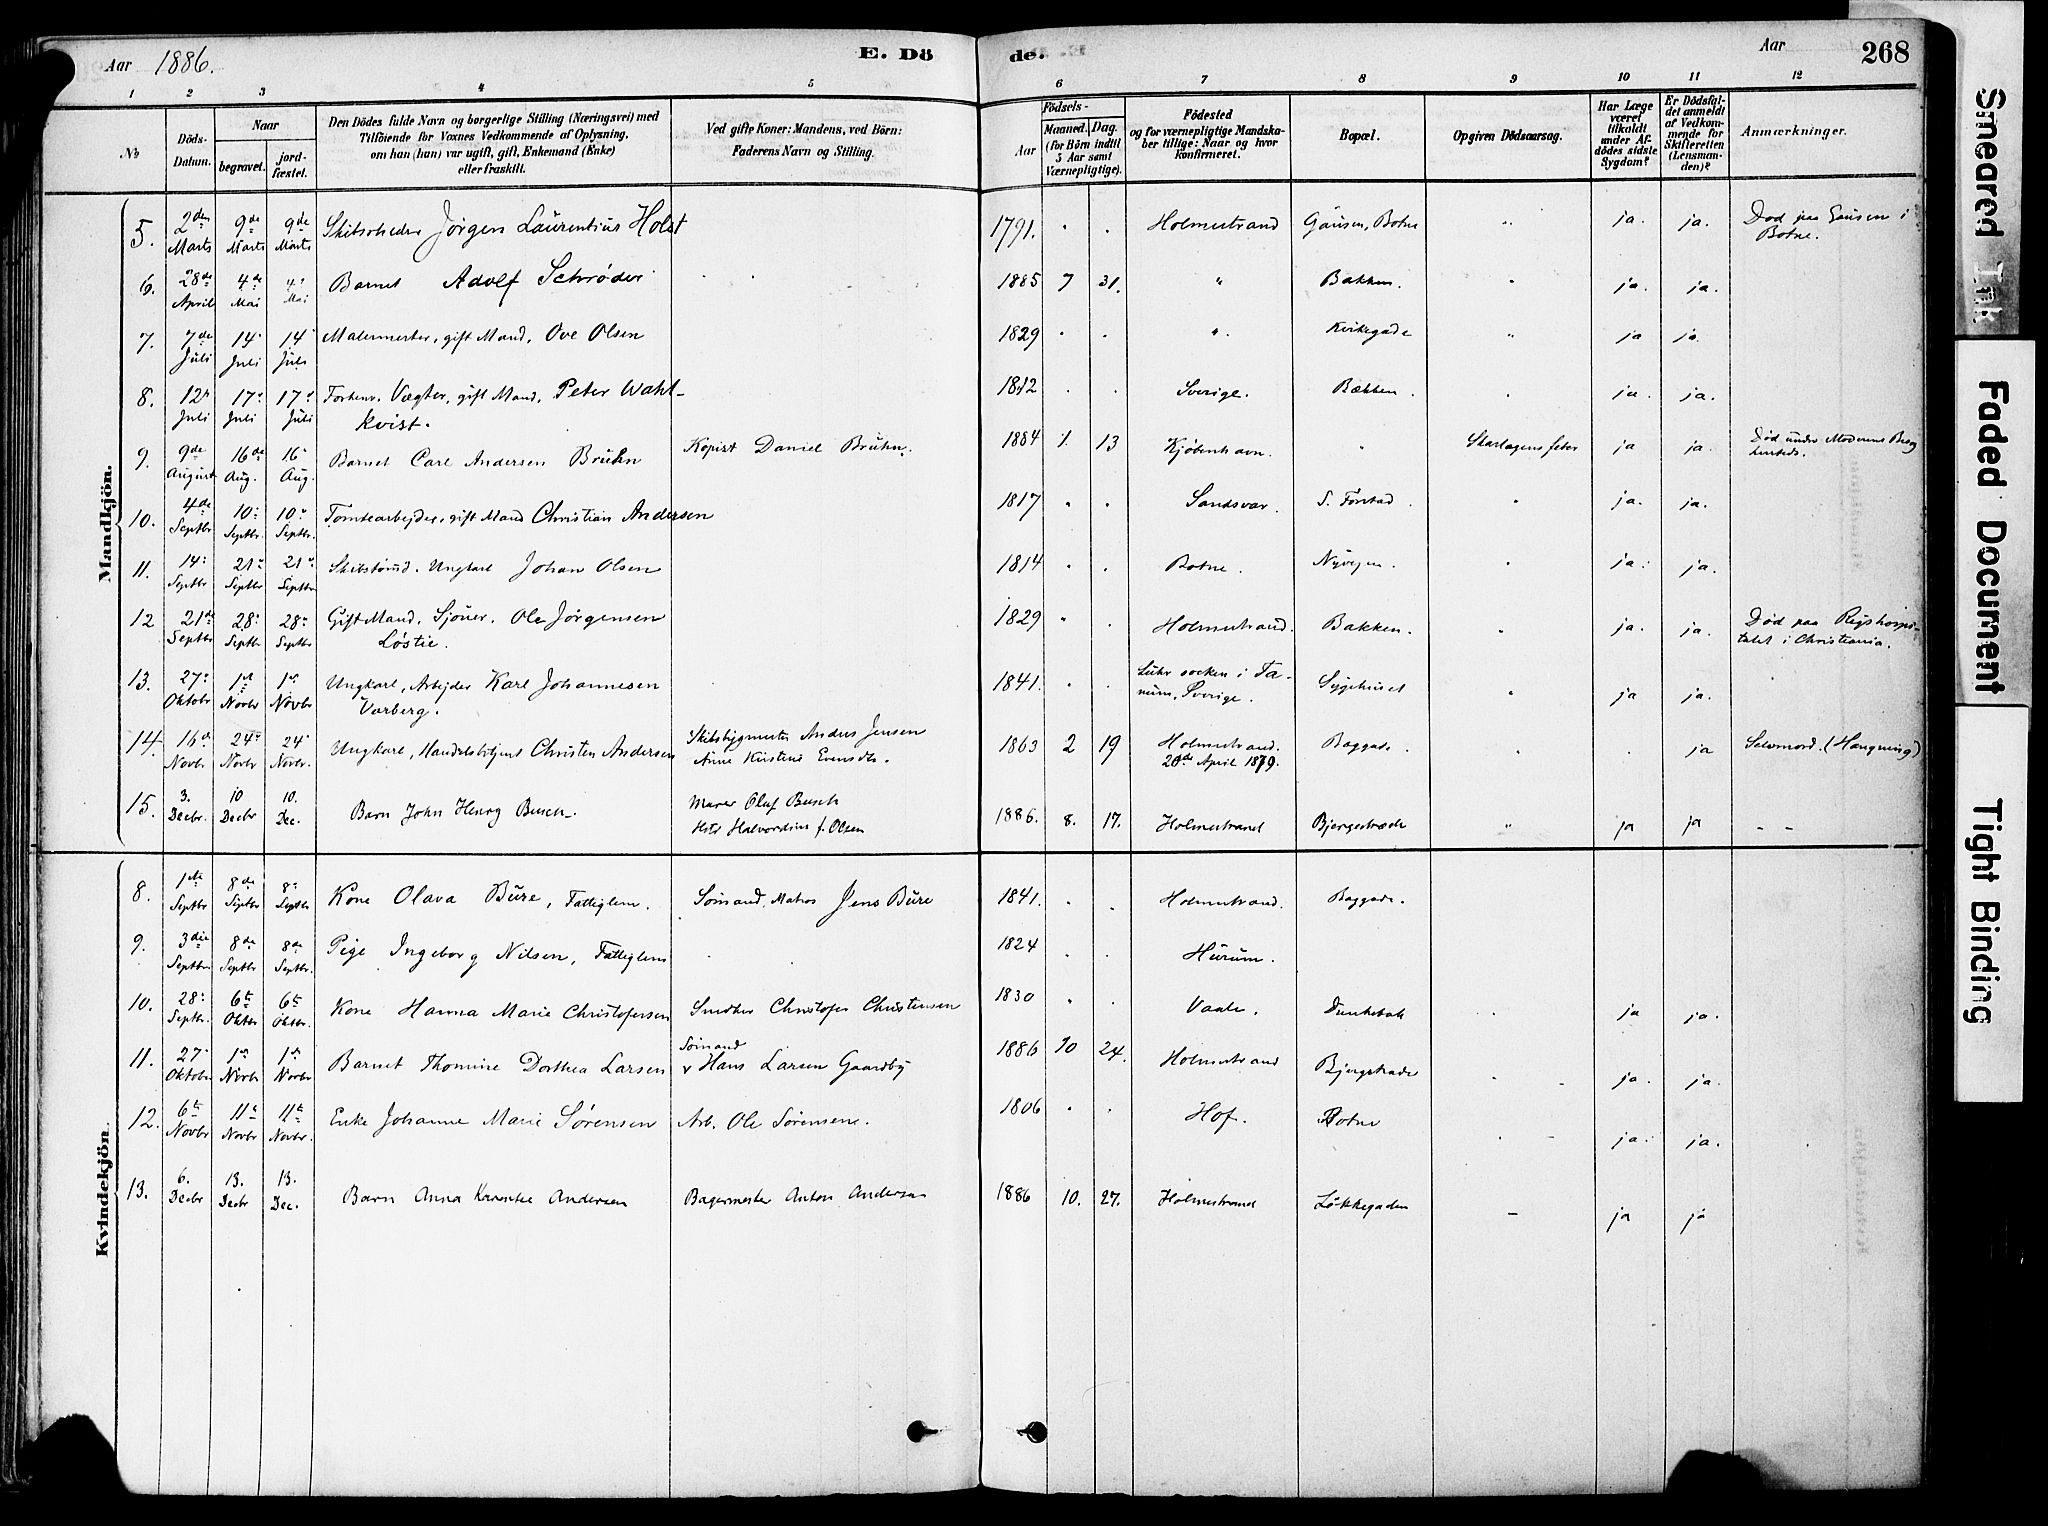 Aar 1886.
E. Dö
de.
Aar
268
1 2 3 4 5 6 7 8 9 10 11 12
№
Döds-
Datum.
Naar
begravet.
jord-
fæstet.
Den Dödes fulde Navn og borgerlige Stilling (Næringsvei) med
Tilföiende for Voxnes Vedkommende af Oplysning,
om han (hun) var ugift, gift, Enkemand (Enke)
eller fraskilt.
Ved gifte Koner: Mandens, ved Börn:
Faderens Navn og Stilling.
Födsels-
Aar
Maaned. Dag.
(for Börn indtil
5 Aar samt
Værnepligtige).
Födested
og for værnepligtige Mandska-
ber tillige: Naar og hvor
konfirmeret.
Bopæl.
Opgiven Dödsaarsag.
Har Læge
været
tilkaldt
under Af-
dødes sidste
Sygdom?
Er Dödsfal-
det anmeldt
af Vedkom-
mende for
Skifteretten
(Lensman-
den)?
Anmærkninger.
Mandkjön.
5. 2den Marts 9de Marts 9de Marts Skibsrheder Jörgen Laurentius Holst 1791. " " Holmestrand Gausen, Botne " ja. ja. Död paa Gausen i
Botne.
6. 28de April 4de Mai 4. Mai Barnet Adolf Schrøder 1885 7 31. " Bakken. " ja. ja.
7. 7de Juli 14 Juli 14 Juli Malermester, gift Mand, Ove Olsen 1829 " " " Kirkegade " ja ja
8. 12 Juli 17 Juli 17 Juli Forhenv. Vægter, gift Mand, Peter Wahl-
kvist. 1812 Sverige. Bækken. ja. ja.
9. 9de August 16de Aug. 16 Aug. Barnet Carl Andersen Bruhn Kopist Daniel Bruhn. 1884 1. 13 Kjøbenhavn. " Skarlagensfeber ja ja. Død under Moderens Besøg
hersteds.
10. 4de Septbr 10 Septbr. 10 Septbr. Tomtearbejder, gift Mand Christian Andersen 1817 " " Sandsvær. ja. ja.
11. 14 Septbr 21 Septbr 21 Septbr Skibstømd. Ungkarl Johan Olsen 1814 " " Botne. Nyvejen. " ja. ja.
12 21de Septbr 28 Septbr 28 Septbr Gift Mand, Sjöuer. Ole Jørgensen
Løstie. 1829 " " Holmestrand. Bakken. " ja. ja. Død paa Rigshospi-
talet i Christiania.
13. 27 Oktobr 1ste Novbr 1ste Novbr Ungkarl, Arbejder Karl Johannesen
Varberg. 1841. socken i Ta-
num, Sverige. Sygehuset " ja ja.
14. 16de Novbr 24 Novbr 24 Novbr. Ungkarl, Handelsbetjent Christen Andersen Skibsbygmester Anders Jensen
Anne Kirstine Evensdtr. 1863 2 19 Holmestrand.
20de April 1879. Baggade. ja Selvmord. (Hængning)
15. 3. Decbr. 10 Decbr 10. Dec. Barn John Henry Busch. Murer Oluf Busch
Hstr Halvordine f. Olsen 1886. 8. 17. Holmestrand Bjergestræde " ja ja - -
Kvindekjön.
8. 1ste Septbr 8de Septbr 8 Septbr Kone Olava Büre, Fattiglem. Sømand, Matros Jens Büre 1841. Holmestrand. Baggade.
9. 3die Septbr. 8de Septbr 8de Septbr. Pige Ingeborg Nilsen, Fattiglem 1824 Hurum.
10. 28 Septbr. 6te Oktbr 6te Oktbr. Kone Hanna Marie Christofersen Snedker Christofer Christensen 1830 " Vaale. Dunkebæk ja ja.
11. 27 Oktobr 1ste Novbr 1ste Novbr Barnet Thomine Dorthea Larsen Sømand
Hans Larsen Gaardby 1886 10 24. Holmestrand Bjergstræde ja. ja.
12. 6te Novbr 11te Novbr 11te Novbr. Enke Johanne Marie Sørensen Arb. Ole Sørensen. 1806 Hof. Botne ja. ja.
13. 6. Decbr 13. Decbr 13. Dec. Barn Anna Andersen Bagermester Anton Andersen 1886 10. 27. Holmestrand Løkkegaden - ja ja
Smeared Ink
Faded Document
Tight Binding